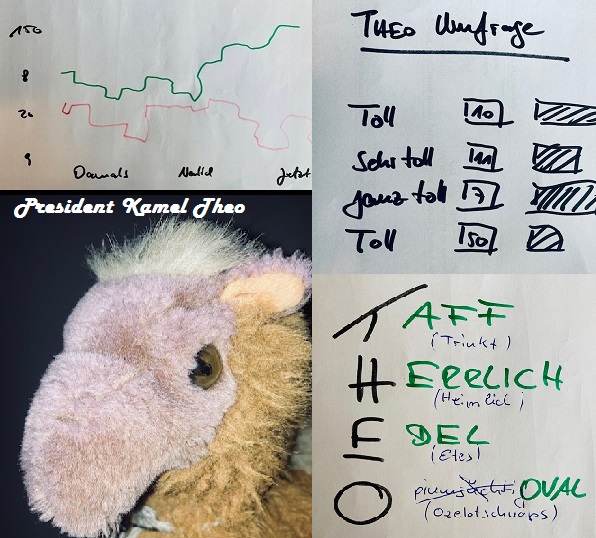 150
8
20
9
Damals Neulich Jetzt
THEO Umfrage
Toll 10
Sehr toll 11
ganz toll 7
Toll 50
President Kamel Theo
T AFF
(Trinkt)
H ERRLICH
(Heimlich)
E DEL
O OVAL
(Ozelotschnaps)